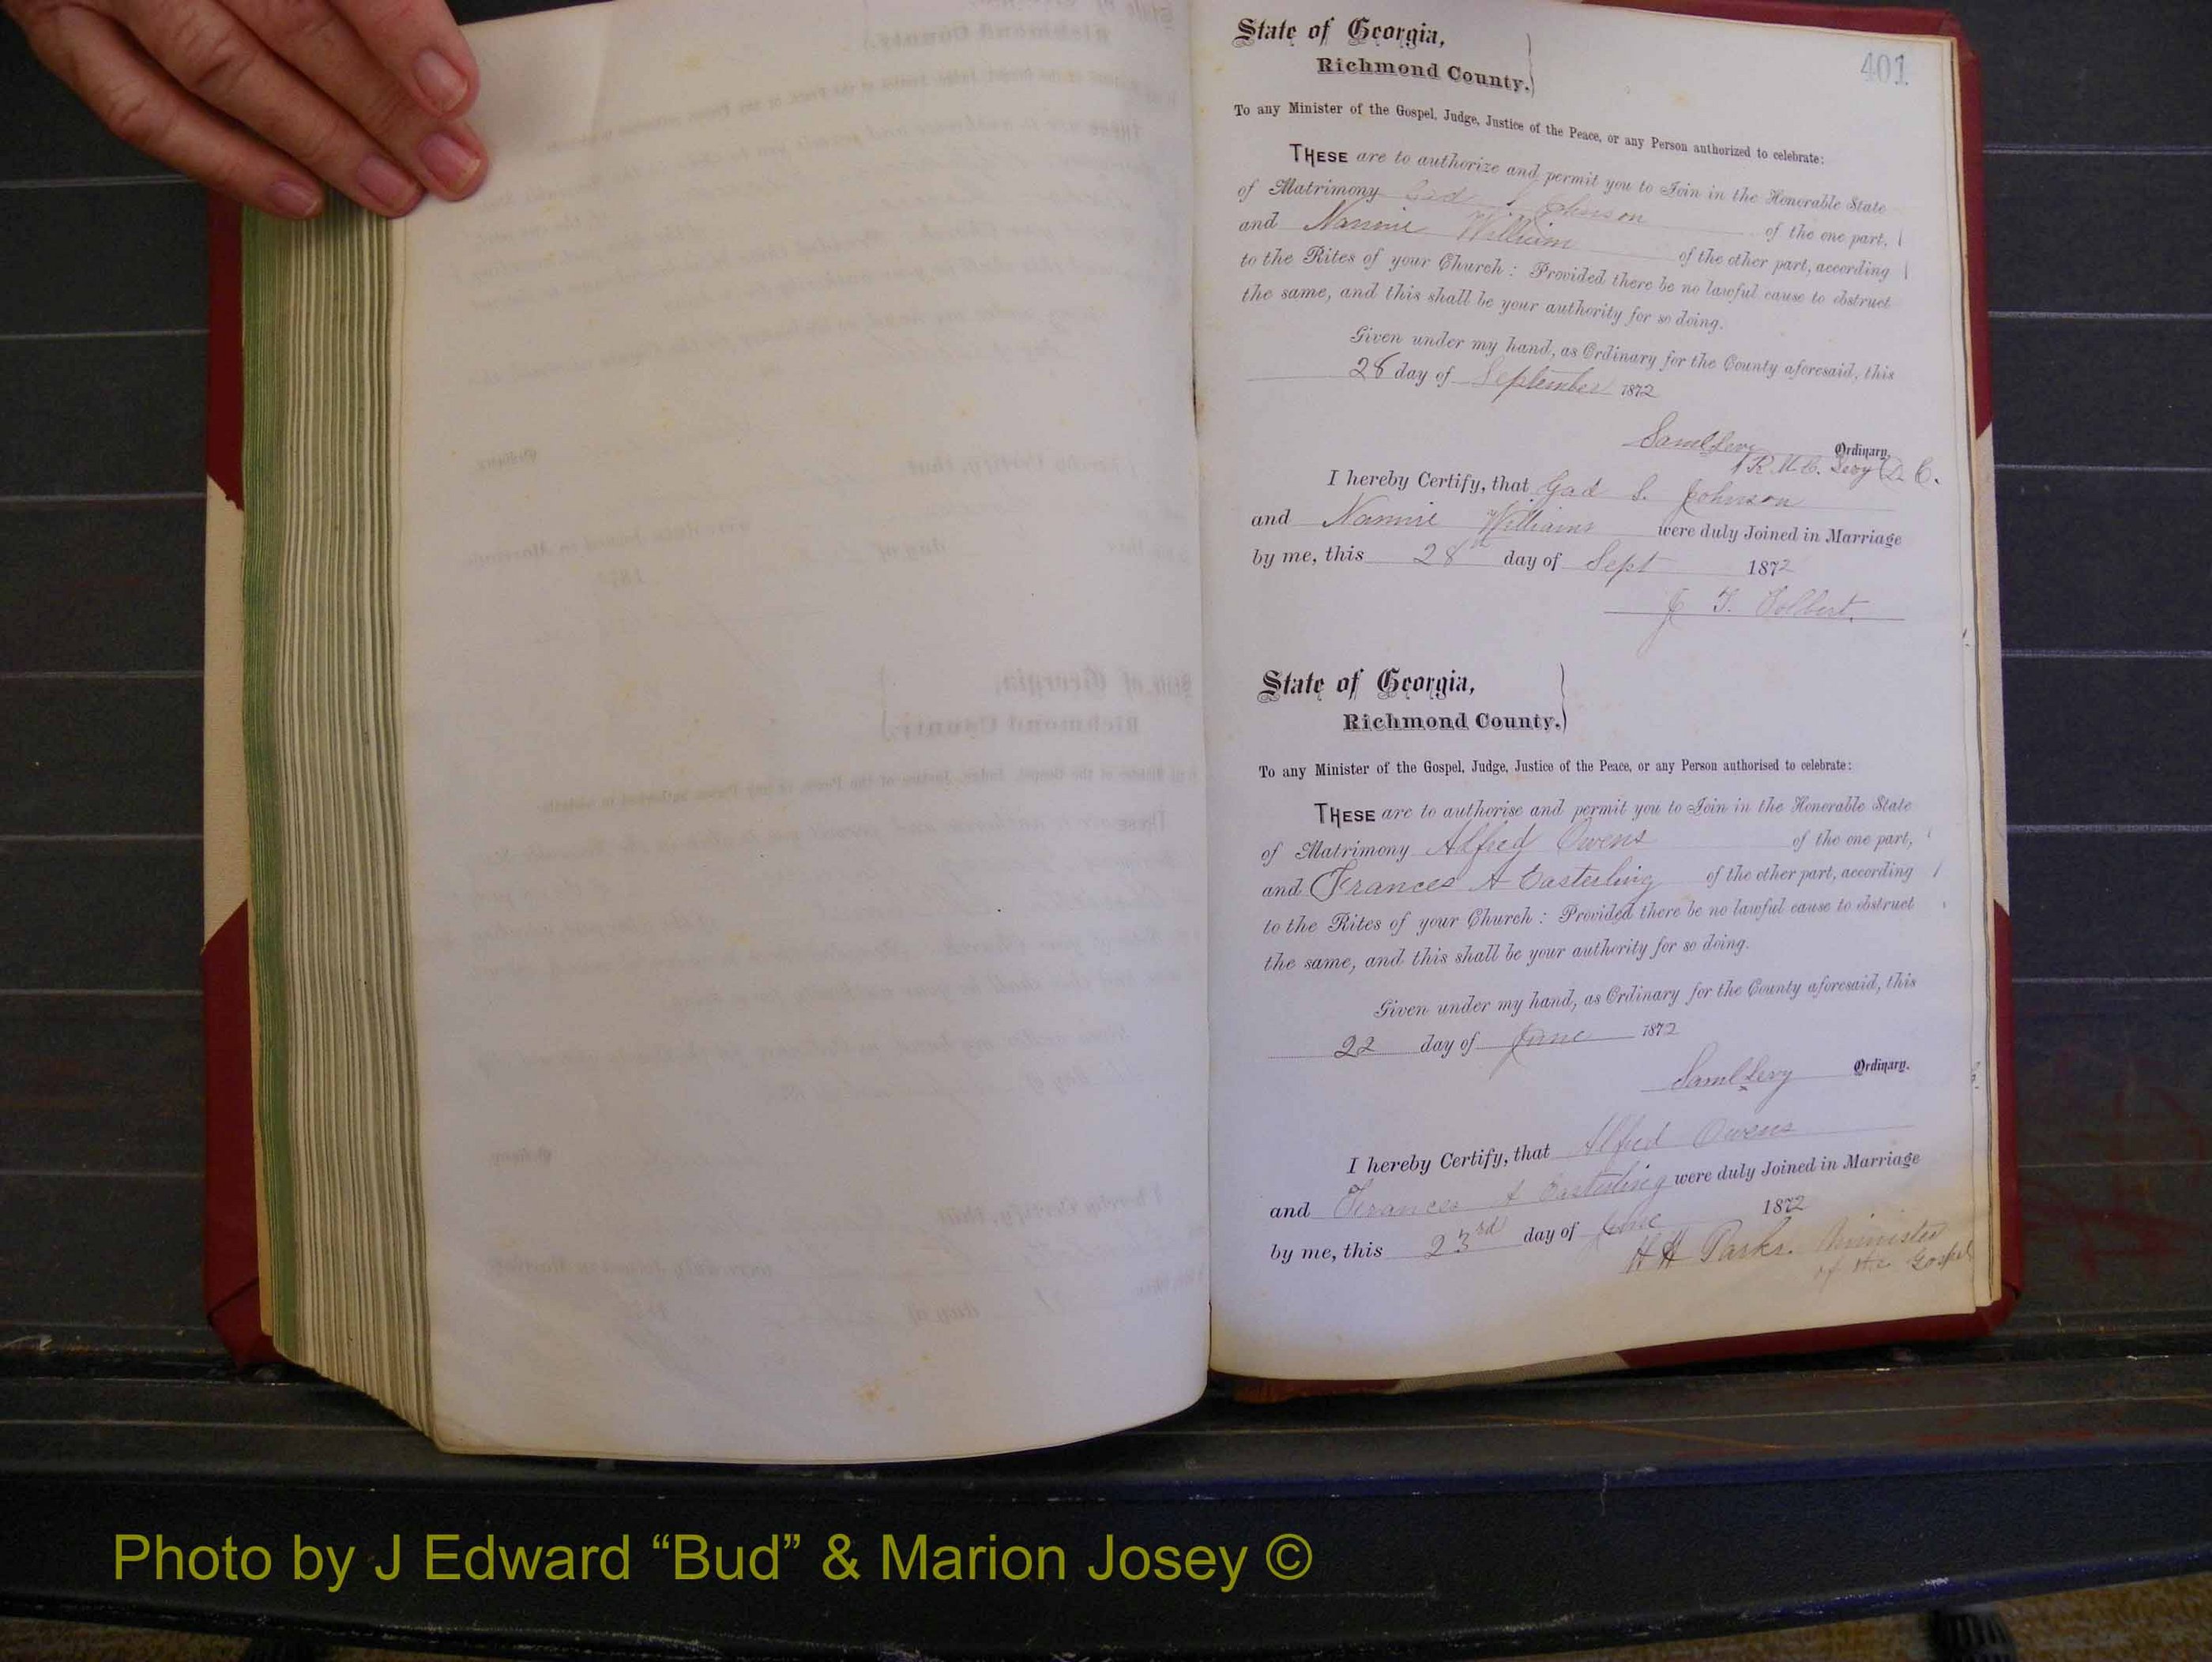 401
State of Georgia,
Richmond County.
To any Minister of the Gospel, Judge, Justice of the Peace, or any Person authorized to celebrate:
THESE are to authorize and permit you to Join in the Honorable State
of Matrimony Gad S Johnson of the one part,
and Nannie William of the other part, according
to the Rites of your Church: Provided there be no lawful cause to obstruct
the same, and this shall be your authority for so doing.
Given under my hand, as Ordinary for the County aforesaid, this
28 day of September 1872
Saml Levy Ordinary.
Levy D. C.
I hereby Certify, that Gad S. Johnson
and Nannie Williams were duly Joined in Marriage
by me, this 28th day of Sept 1872
J T. Tolbert.
State of Georgia,
Richmond County.
To any Minister of the Gospel, Judge, Justice of the Peace, or any Person authorised to celebrate:
THESE are to authorise and permit you to Join in the Honorable State
of Matrimony Alfred Owens of the one part,
and Frances A Easterling of the other part, according
to the Rites of your Church: Provided there be no lawful cause to obstruct
the same, and this shall be your authority for so doing.
Given under my hand, as Ordinary for the County aforesaid, this
22 day of June 1872
Saml Levy Ordinary.
I hereby Certify, that Alfred Owens
and Frances A Easterling were duly Joined in Marriage
by me, this 23rd day of June 1872
H H Parks. Minister
of the Gospel
Photo by J Edward “Bud” & Marion Josey ©